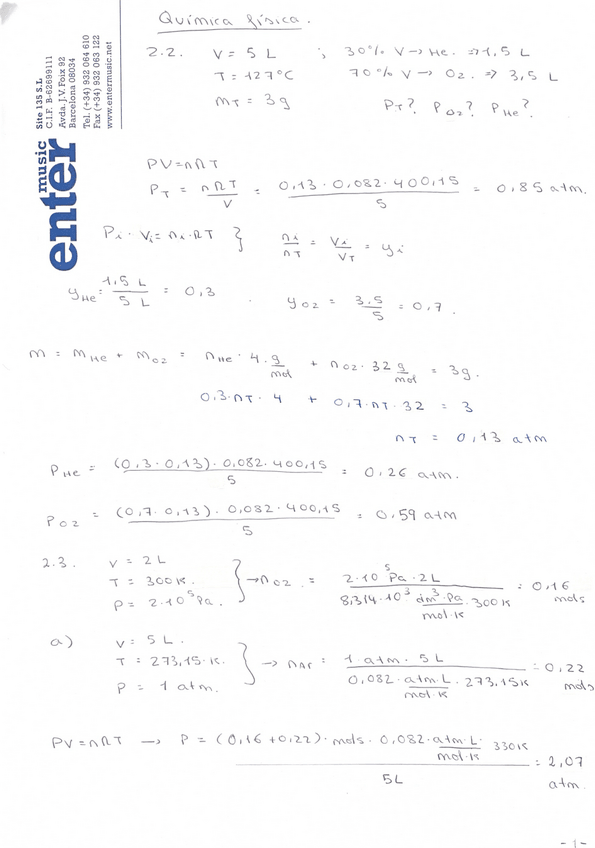 Química física.
enter music
Site 135 S.L
C.I.F. B-62699111
Avda. J.V. Foix 92
Barcelona 08034
Tel. (+34) 932 064 610
Fax (+34) 932 063 122
www.entermusic.net
2.2. V = 5 L ; 30% V → He. ⇒ 1,5 L
T = 127ºC 70% V → O₂. ⇒ 3,5 L
m_T = 3g P_T? P_O₂? P_He?
PV = nRT
P_T = nRT/V = 0,13 · 0,082 · 400,15 / 5 = 0,85 atm.
P_i · V_i = n_i · RT } n_i/n_T = V_i/V_T = y_i
y_He = 1,5 L / 5 L = 0,3 . y_O₂ = 3,5/5 = 0,7.
m = m_He + m_O₂ = n_He · 4 · g/mol + n_O₂ · 32 g/mol = 3g.
0,3 · n_T · 4 + 0,7 · n_T · 32 = 3
n_T = 0,13 atm
P_He = (0,3 · 0,13) · 0,082 · 400,15 / 5 = 0,26 atm.
P_O₂ = (0,7 · 0,13) · 0,082 · 400,15 / 5 = 0,59 atm
2.3. V = 2L
T = 300K.
P = 2·10⁵ Pa. } → n_O₂ = 2·10⁵ Pa · 2L / 8,314·10³ dm³·Pa/mol·K · 300K = 0,16 mols
a) V = 5 L.
T = 273,15·K.
P = 1 atm. } → n_Ar = 1 atm · 5 L / 0,082 · atm·L/mol·K · 273,15K = 0,22 mols
PV = nRT → P = (0,16 + 0,22) · mols · 0,082 · atm·L/mol·K · 330K / 5L = 2,07 atm.
-1-